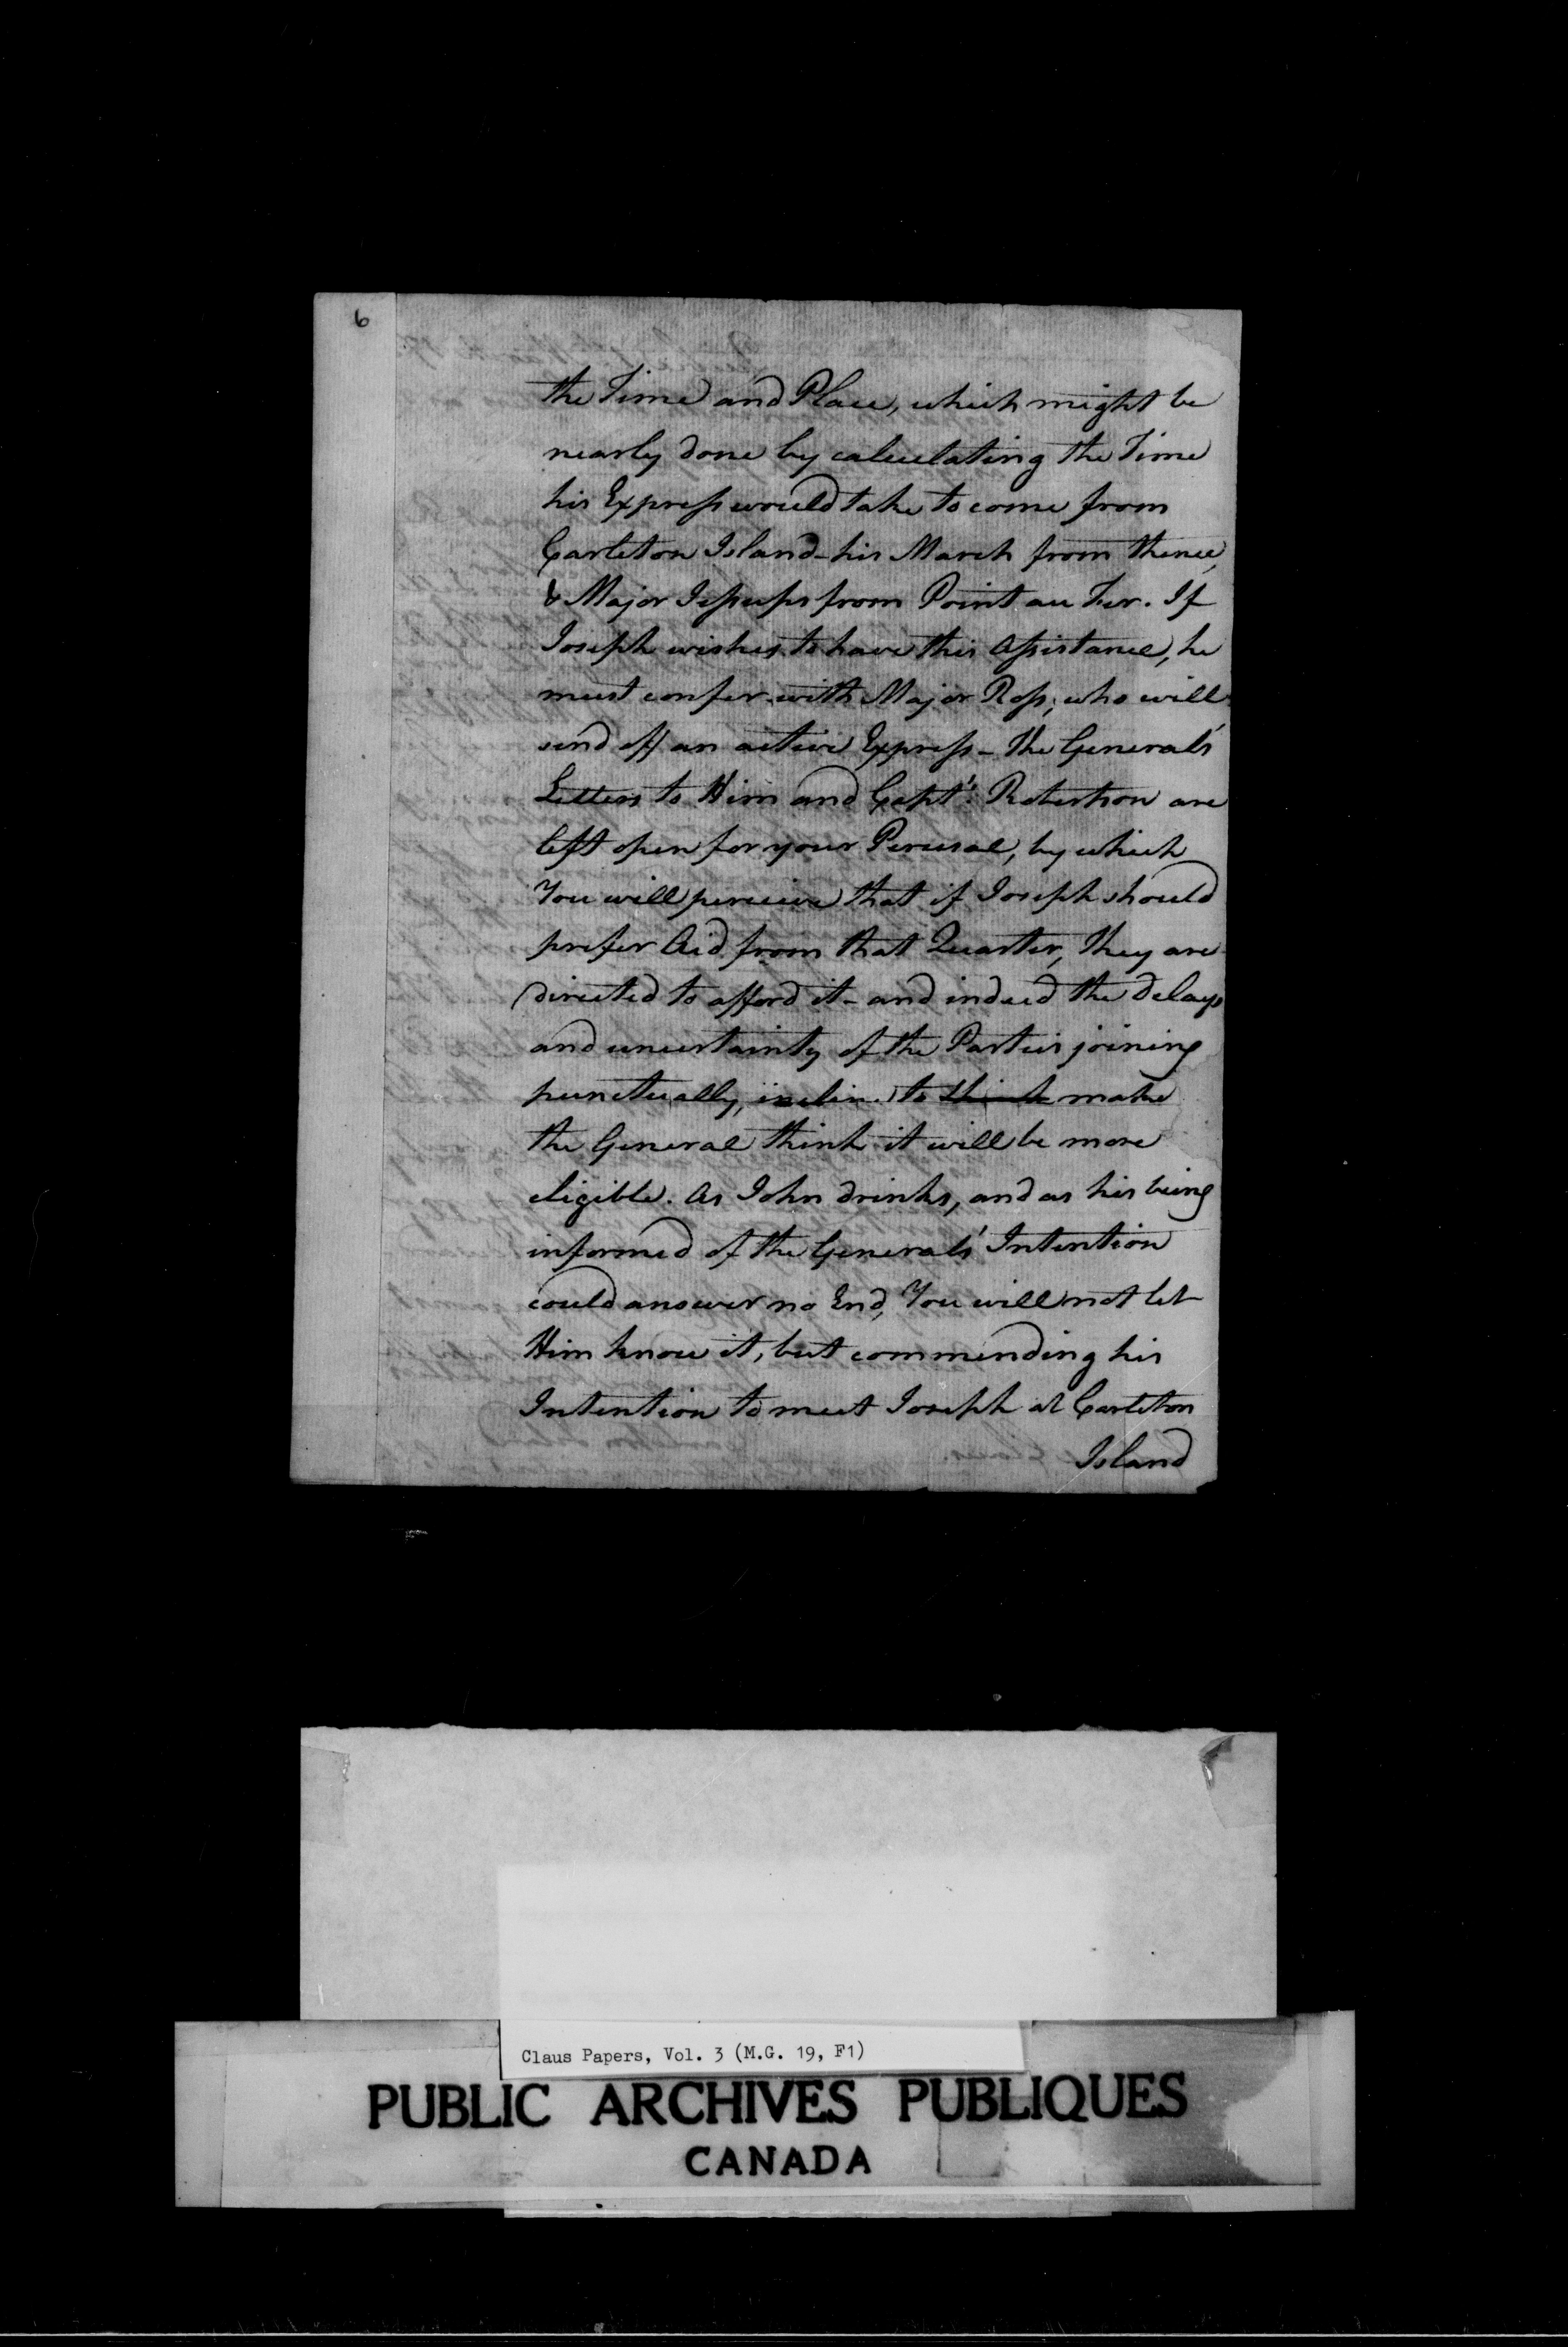 6
the Time and Place, which might be
nearly done by calculating the Time
his Express would take to come from
Carleton Island - his March from thence,
& Major Jessups from Point au Fer. If
Joseph wishes to have this Assistance, he
must confer with Major Ross, who will
send off an active Express - The General's
Letters to Him and Capt. Robertson are
left open for your Perusal, by which
You will perceive that if Joseph should
prefer Aid from that Quarter, they are
directed to afford it - and indeed the Delays
and uncertainty of the Parties joining
punctually, incline to think make
the General think it will be more
eligible. As John drinks, and as his being
informed of the General's Intention
could answer no End, You will not let
Him know it, but commending his
Intention to meet Joseph at Carleton
Island
Claus Papers, Vol. 3 (M.G. 19, F1)
PUBLIC ARCHIVES PUBLIQUES
CANADA